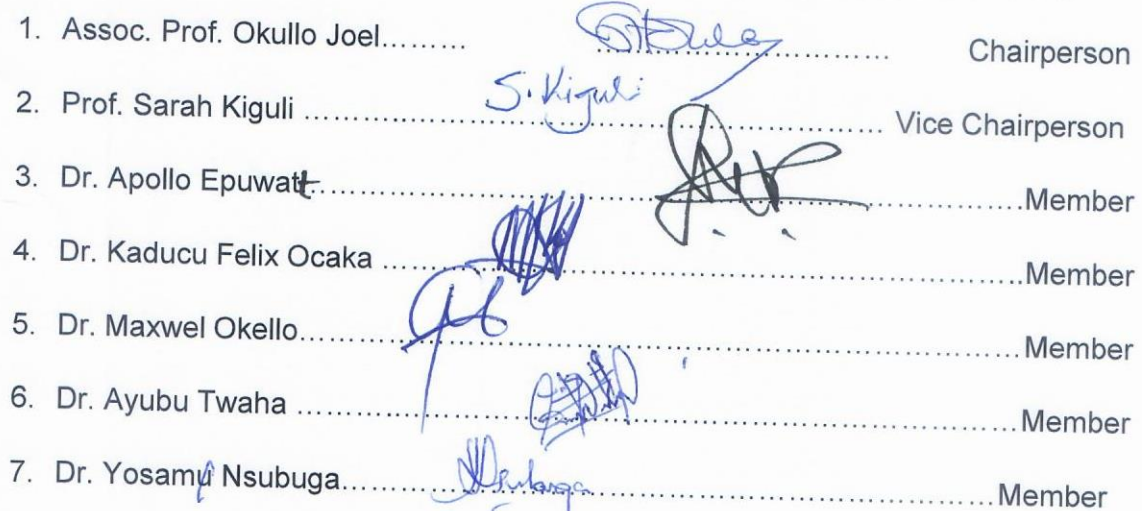 1. Assoc. Prof. Okullo Joel......... .............................. Chairperson
2. Prof. Sarah Kiguli ........ S. Kiguli ........ Vice Chairperson
3. Dr. Apollo Epuwatt........................Member
4. Dr. Kaducu Felix Ocaka ........................Member
5. Dr. Maxwel Okello........................Member
6. Dr. Ayubu Twaha ........................Member
7. Dr. Yosamu Nsubuga........ Nsubuga ........Member